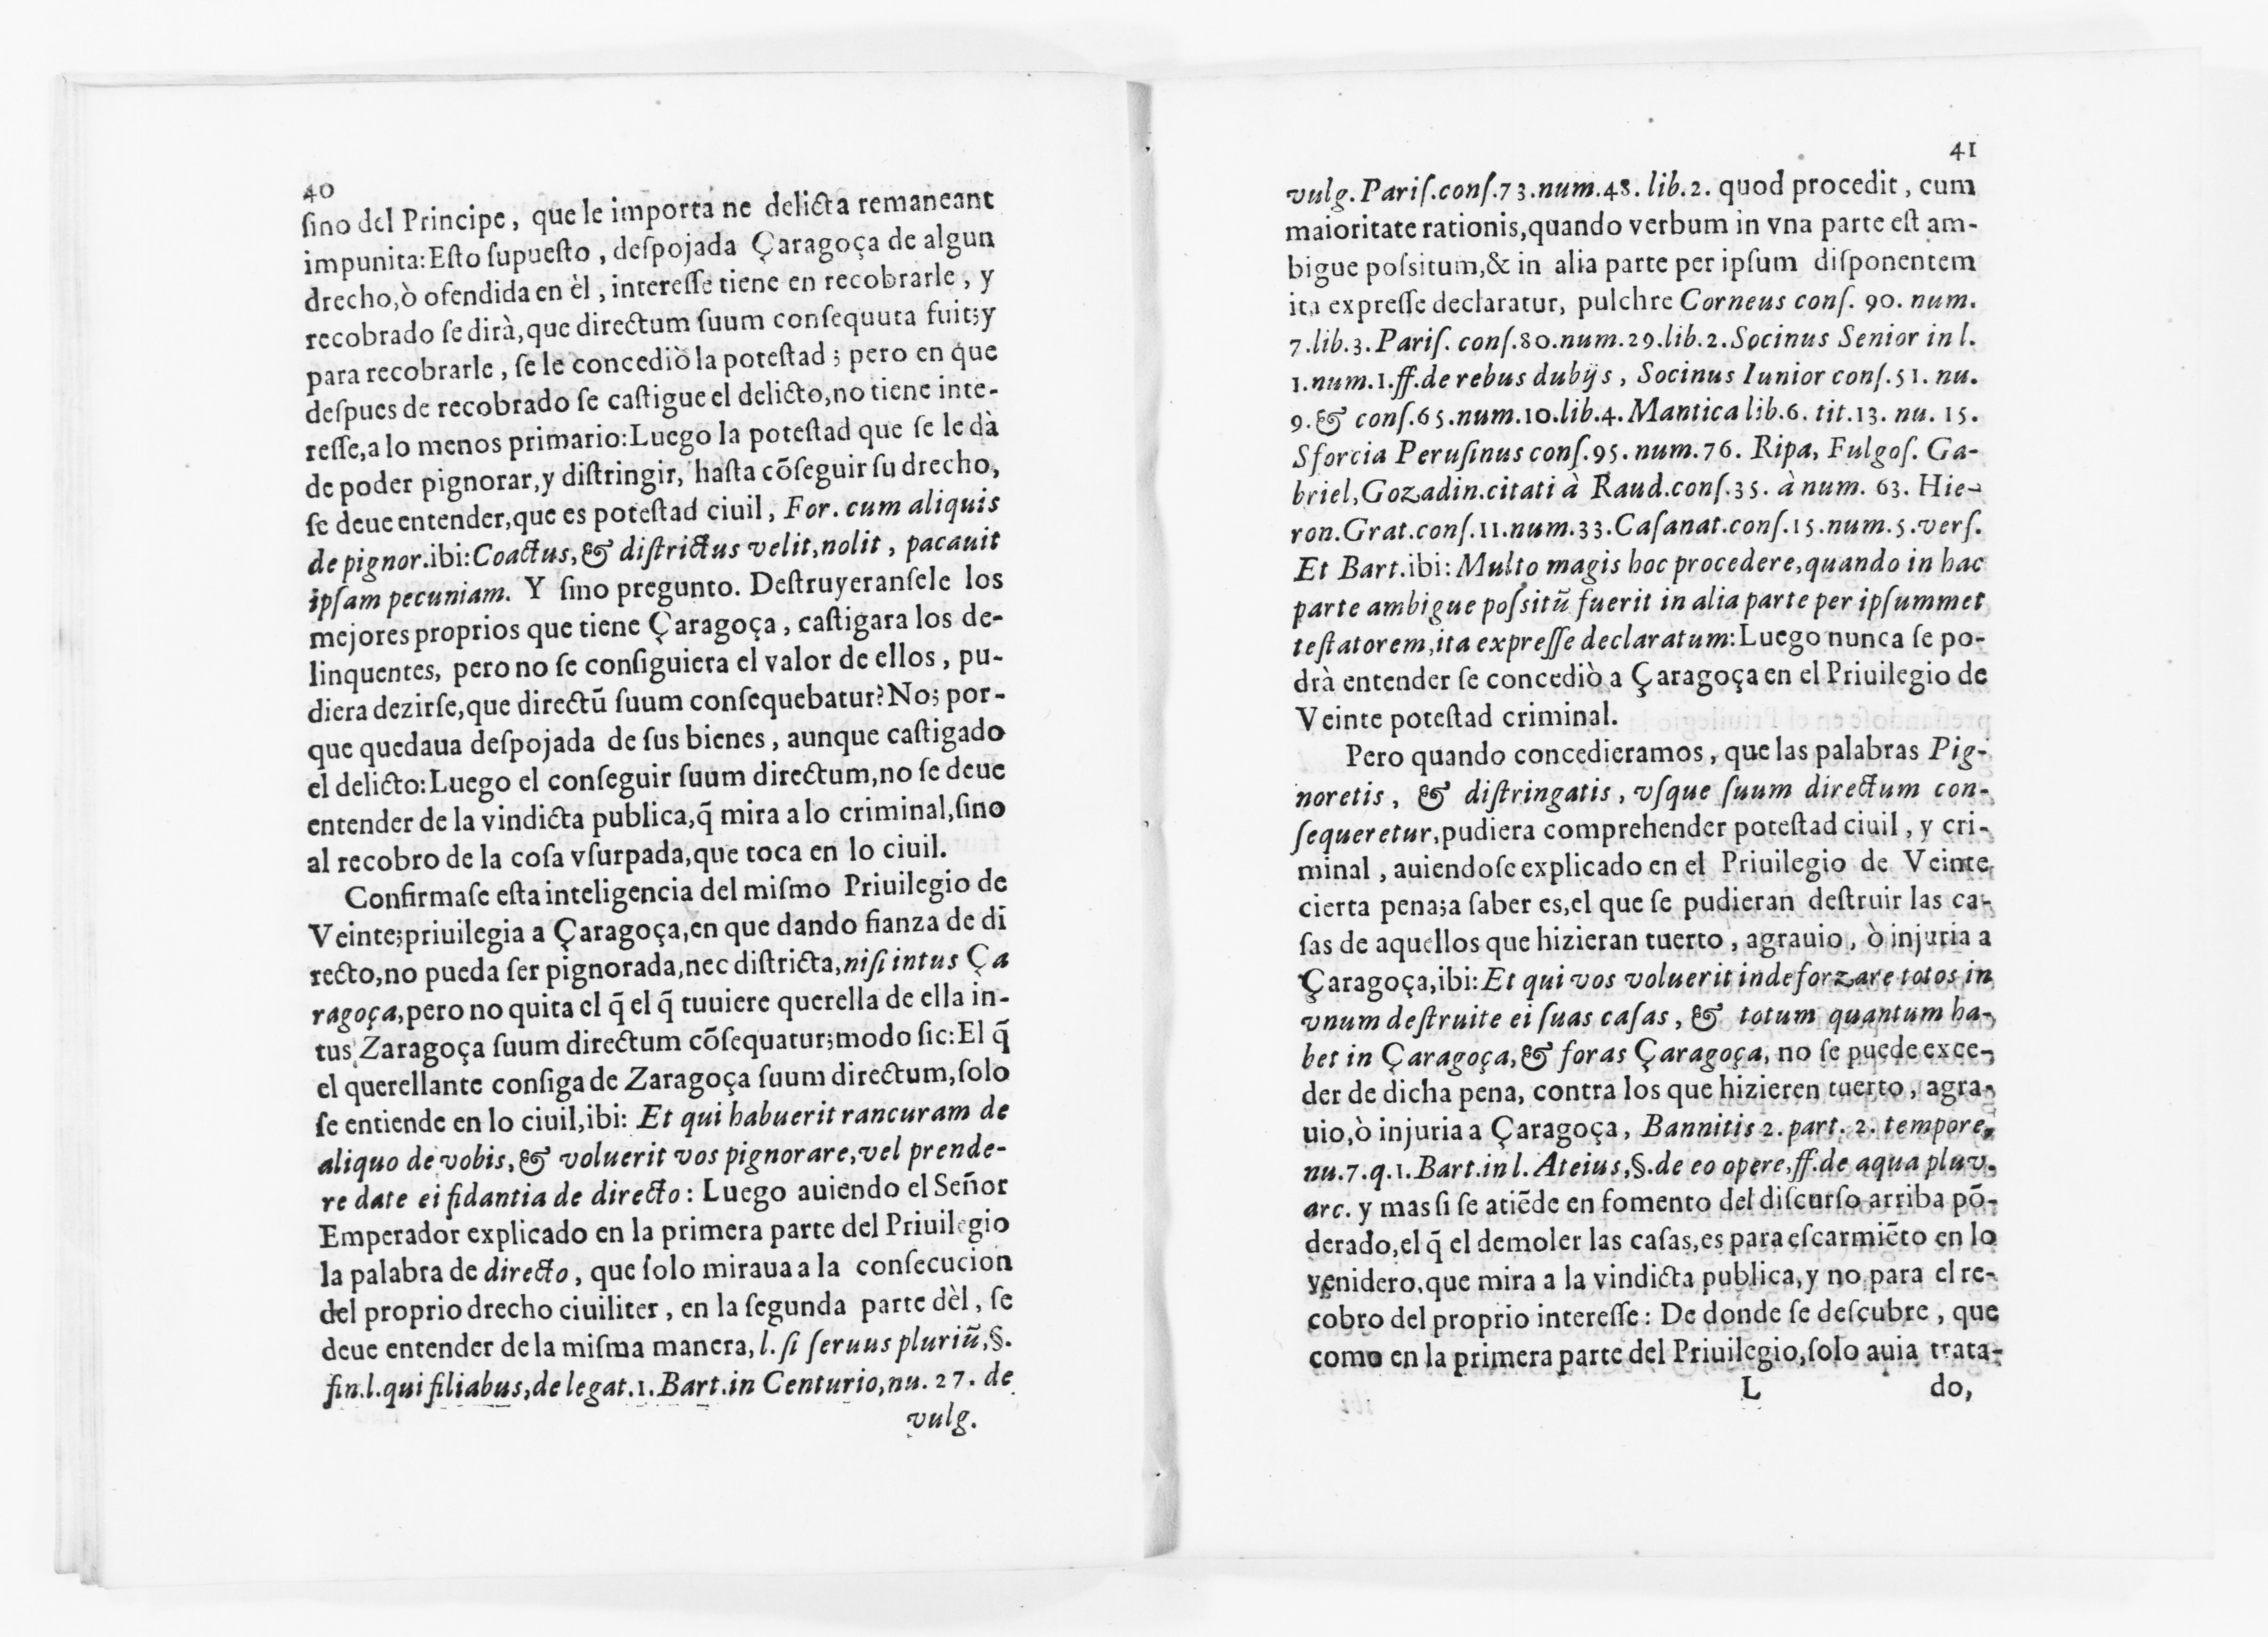 40
ſino del Principe, que le importa ne delicta remaneant
impunita: Eſto ſupueſto, deſpojada Çaragoça de algun
drecho, ò ofendida en èl, intereſſe tiene en recobrarle, y
recobrado ſe dirà, que directum ſuum conſequuta fuit; y
para recobrarle, ſe le concediò la poteſtad; pero en que
deſpues de recobrado ſe caſtigue el delicto, no tiene inte-
reſſe, a lo menos primario: Luego la poteſtad que ſe le dà
de poder pignorar, y diſtringir, haſta cõſeguir ſu drecho,
ſe deue entender, que es poteſtad ciuil, For. cum aliquis
de pignor. ibi: Coactus, & diſtrictus velit, nolit, pacauit
ipſam pecuniam. Y ſino pregunto. Deſtruyeranſele los
mejores proprios que tiene Çaragoça, caſtigara los de-
linquentes, pero no ſe conſiguiera el valor de ellos, pu-
diera dezirſe, que directũ ſuum conſequebatur? No; por-
que quedaua deſpojada de ſus bienes, aunque caſtigado
el delicto: Luego el conſeguir ſuum directum, no ſe deue
entender de la vindicta publica, q̃ mira a lo criminal, ſino
al recobro de la coſa vſurpada, que toca en lo ciuil.
Confirmaſe eſta inteligencia del miſmo Priuilegio de
Veinte; priuilegia a Çaragoça, en que dando fianza de di
recto, no pueda ſer pignorada, nec diſtricta, niſi intus Ça
ragoça, pero no quita el q̃ el q̃ tuuiere querella de ella in-
tus Zaragoça ſuum directum cõſequatur; modo ſic: El q̃
el querellante conſiga de Zaragoça ſuum directum, ſolo
ſe entiende en lo ciuil, ibi: Et qui habuerit rancuram de
aliquo de vobis, & voluerit vos pignorare, vel prende-
re date ei fidantia de directo: Luego auiendo el Señor
Emperador explicado en la primera parte del Priuilegio
la palabra de directo, que ſolo miraua a la conſecucion
del proprio drecho ciuiliter, en la ſegunda parte dèl, ſe
deue entender de la miſma manera, l. ſi ſeruus pluriũ, §.
fin. l. qui filiabus, de legat. 1. Bart. in Centurio, nu. 27. de
vulg.
41
vulg. Pariſ. conſ. 73. num. 48. lib. 2. quod procedit, cum
maioritate rationis, quando verbum in vna parte eſt am-
bigue poſsitum, & in alia parte per ipſum diſponentem
ita expreſſe declaratur, pulchre Corneus conſ. 90. num.
7. lib. 3. Pariſ. conſ. 80. num. 29. lib. 2. Socinus Senior in l.
1. num. 1. ff. de rebus dubijs, Socinus Iunior conſ. 51. nu.
9. & conſ. 65. num. 10. lib. 4. Mantica lib. 6. tit. 13. nu. 15.
Sforcia Peruſinus conſ. 95. num. 76. Ripa, Fulgoſ. Ga-
briel, Gozadin. citati à Raud. conſ. 35. à num. 63. Hie-
ron. Grat. conſ. 11. num. 33. Caſanat. conſ. 15. num. 5. verſ.
Et Bart. ibi: Multo magis hoc procedere, quando in hac
parte ambigue poſsitũ fuerit in alia parte per ipſummet
teſtatorem, ita expreſſe declaratum: Luego nunca ſe po-
drà entender ſe concediò a Çaragoça en el Priuilegio de
Veinte poteſtad criminal.
Pero quando concedieramos, que las palabras Pig-
noretis, & diſtringatis, vſque ſuum directum con-
ſequeretur, pudiera comprehender poteſtad ciuil, y cri-
minal, auiendoſe explicado en el Priuilegio de Veinte,
cierta pena; a ſaber es, el que ſe pudieran deſtruir las ca-
ſas de aquellos que hizieran tuerto, agrauio, ò injuria a
Çaragoça, ibi: Et qui vos voluerit inde forzare totos in
vnum deſtruite ei ſuas caſas, & totum quantum ha-
bet in Çaragoça, & foras Çaragoça, no ſe puede exce-
der de dicha pena, contra los que hizieren tuerto, agra-
uio, ò injuria a Çaragoça, Bannitis 2. part. 2. tempore,
nu. 7. q. 1. Bart. in l. Ateius, §. de eo opere, ff. de aqua pluv.
arc. y mas ſi ſe atiẽde en fomento del diſcurſo arriba põ-
derado, el q̃ el demoler las caſas, es para eſcarmiẽto en lo
venidero, que mira a la vindicta publica, y no para el re-
cobro del proprio intereſſe: De donde ſe deſcubre, que
como en la primera parte del Priuilegio, ſolo auia trata-
L do,